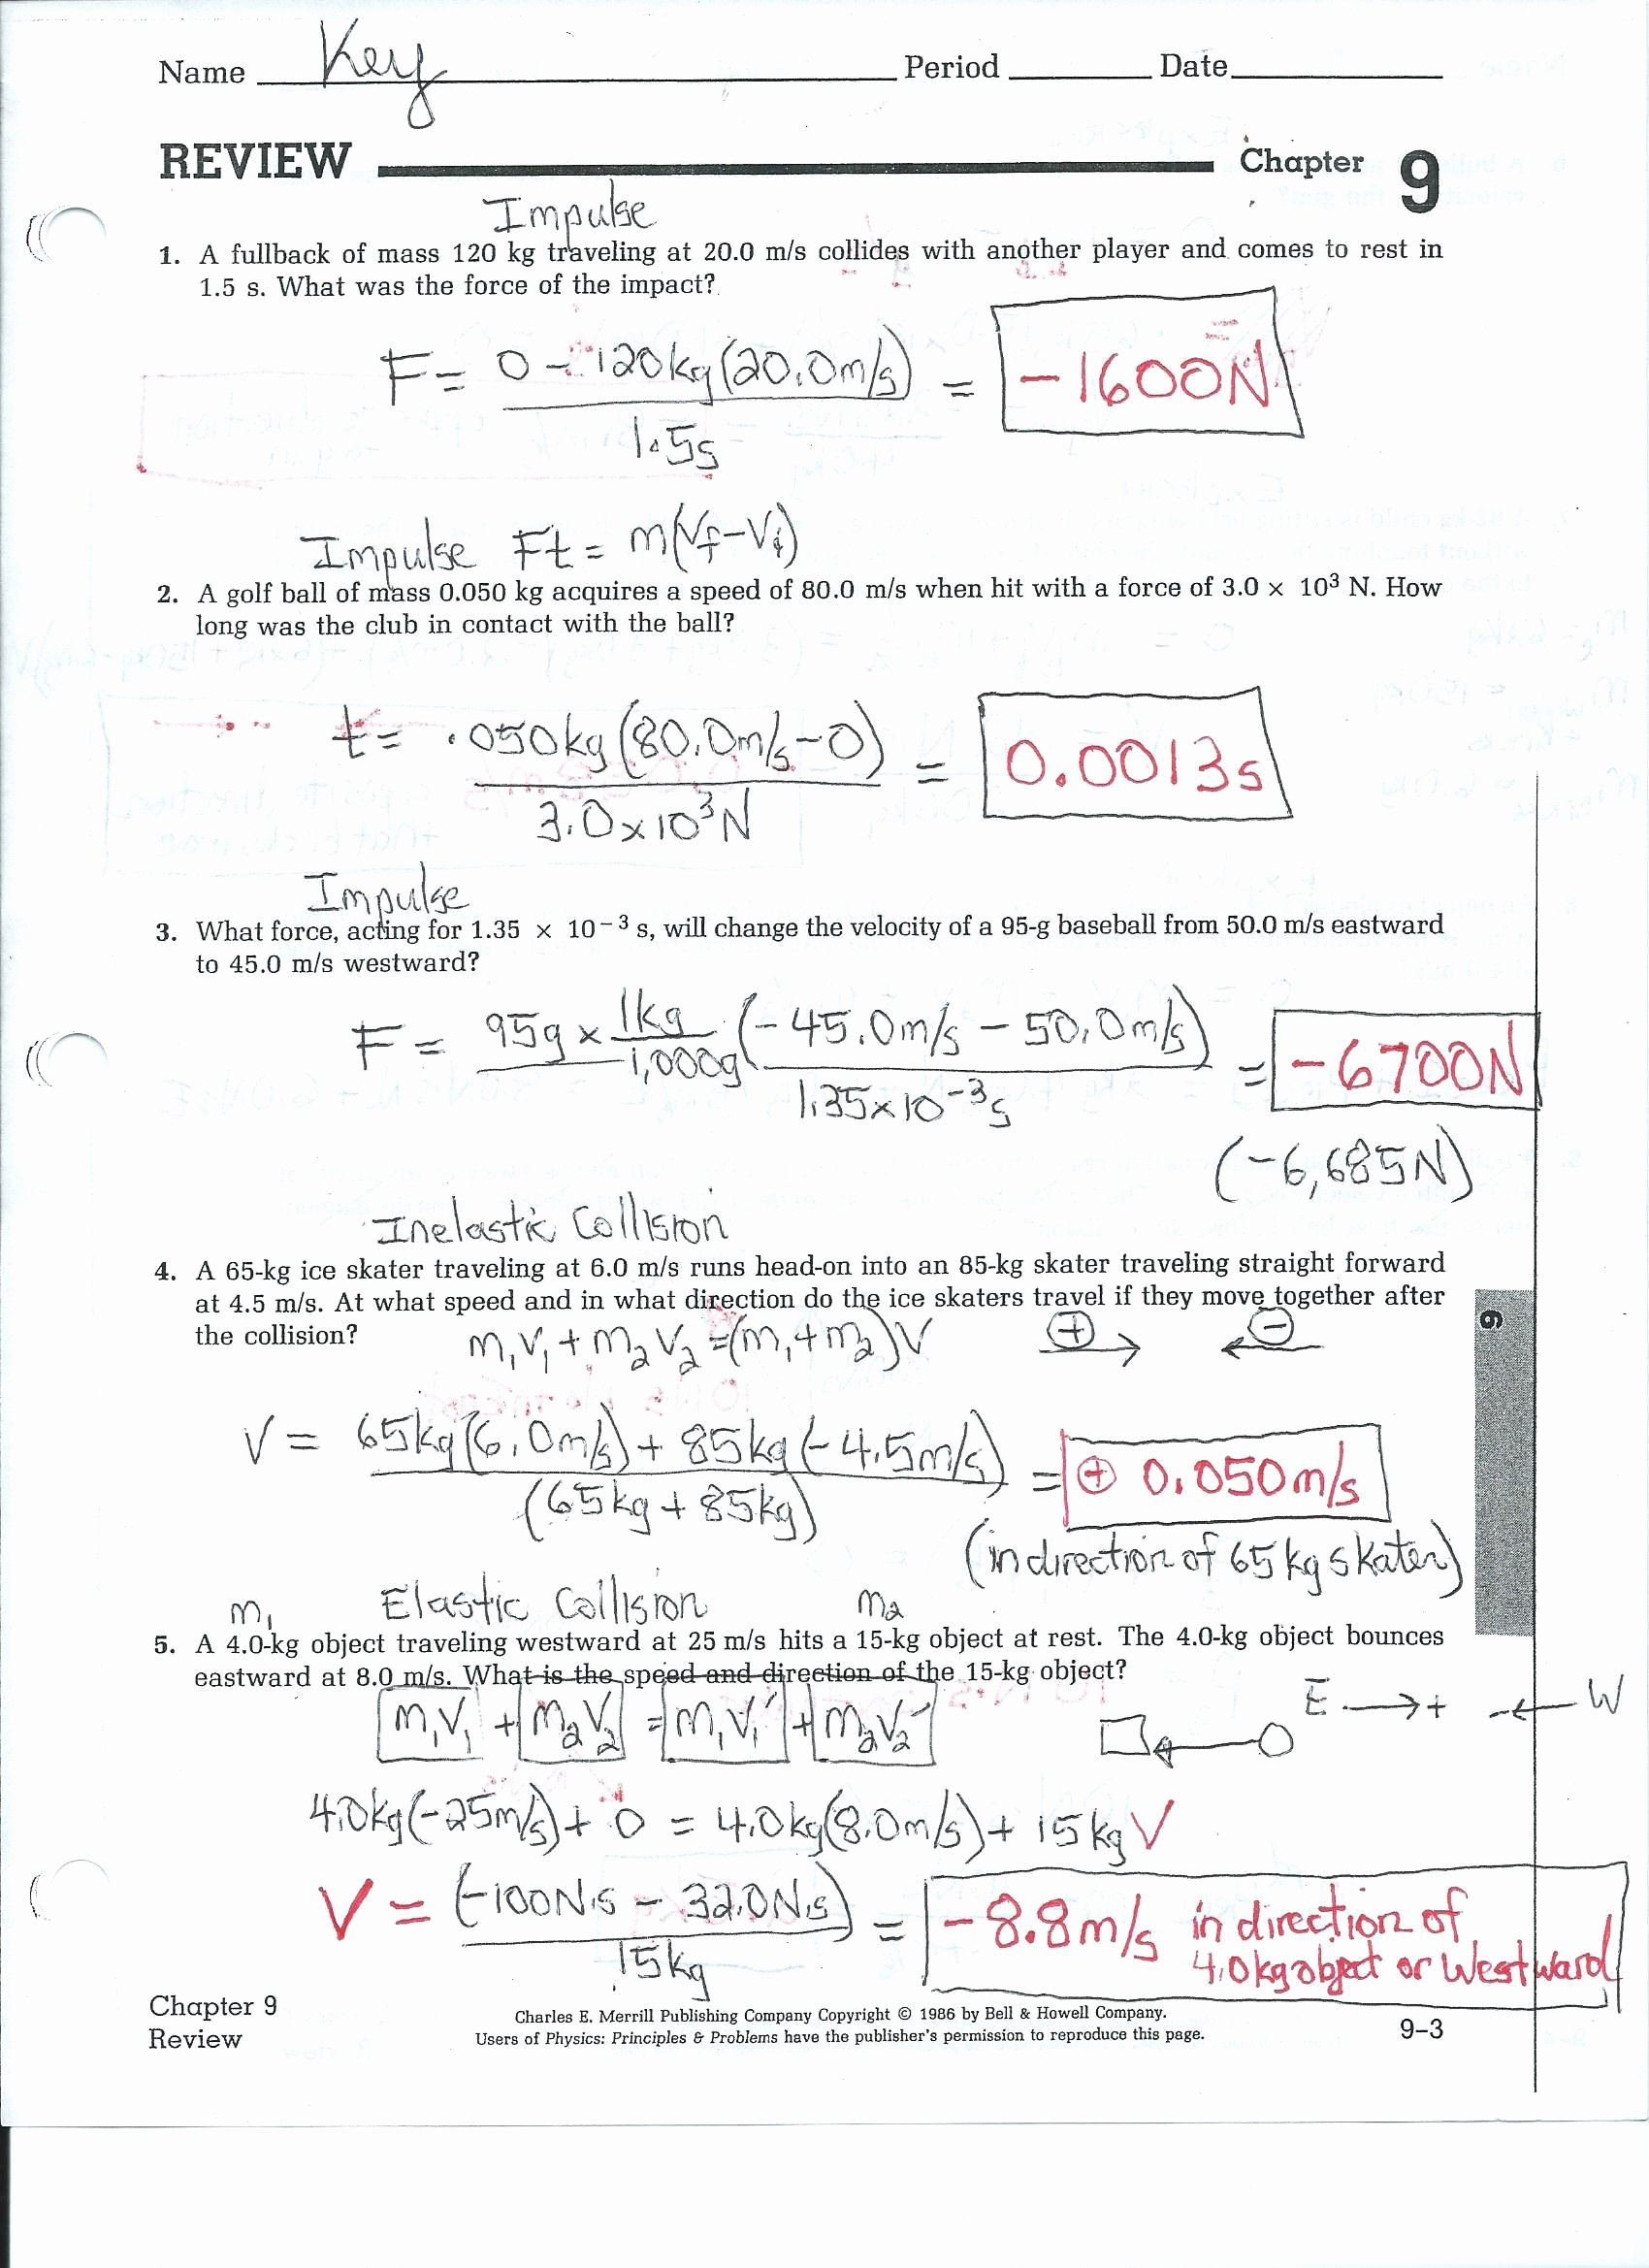 Name Key Period Date
REVIEW Chapter 9
Impulse
1. A fullback of mass 120 kg traveling at 20.0 m/s collides with another player and comes to rest in
1.5 s. What was the force of the impact?
F = 0 - 120kg(20.0m/s) = -1600N
1.5s
Impulse Ft = m(Vf-Vi)
2. A golf ball of mass 0.050 kg acquires a speed of 80.0 m/s when hit with a force of 3.0 × 10³ N. How
long was the club in contact with the ball?
t = .050kg(80.0m/s-0) = 0.0013s
3.0x10³N
Impulse
3. What force, acting for 1.35 × 10⁻³ s, will change the velocity of a 95-g baseball from 50.0 m/s eastward
to 45.0 m/s westward?
F = 95g x 1kg/1,000g (-45.0m/s - 50.0m/s) = -6700N
1.35x10⁻³s
(-6,685N)
Inelastic Collision
4. A 65-kg ice skater traveling at 6.0 m/s runs head-on into an 85-kg skater traveling straight forward
at 4.5 m/s. At what speed and in what direction do the ice skaters travel if they move together after
the collision?
m₁V₁ + m₂V₂ = (m₁+m₂)V + → ← -
9
V = 65kg(6.0m/s) + 85kg(-4.5m/s) = + 0.050m/s
(65kg + 85kg)
(in direction of 65kg skater)
m₁ Elastic Collision m₂
5. A 4.0-kg object traveling westward at 25 m/s hits a 15-kg object at rest. The 4.0-kg object bounces
eastward at 8.0 m/s. What is the speed and direction of the 15-kg object?
m₁V₁ + m₂V₂ = m₁V₁' + m₂V₂' E → + - ← W
4.0kg(-25m/s) + 0 = 4.0kg(8.0m/s) + 15kg V
V = (-100N·s - 32.0N·s) = -8.8m/s in direction of
15kg 4.0kg object or Westward
Chapter 9
Review
Charles E. Merrill Publishing Company Copyright © 1986 by Bell & Howell Company.
Users of Physics: Principles & Problems have the publisher's permission to reproduce this page.
9-3